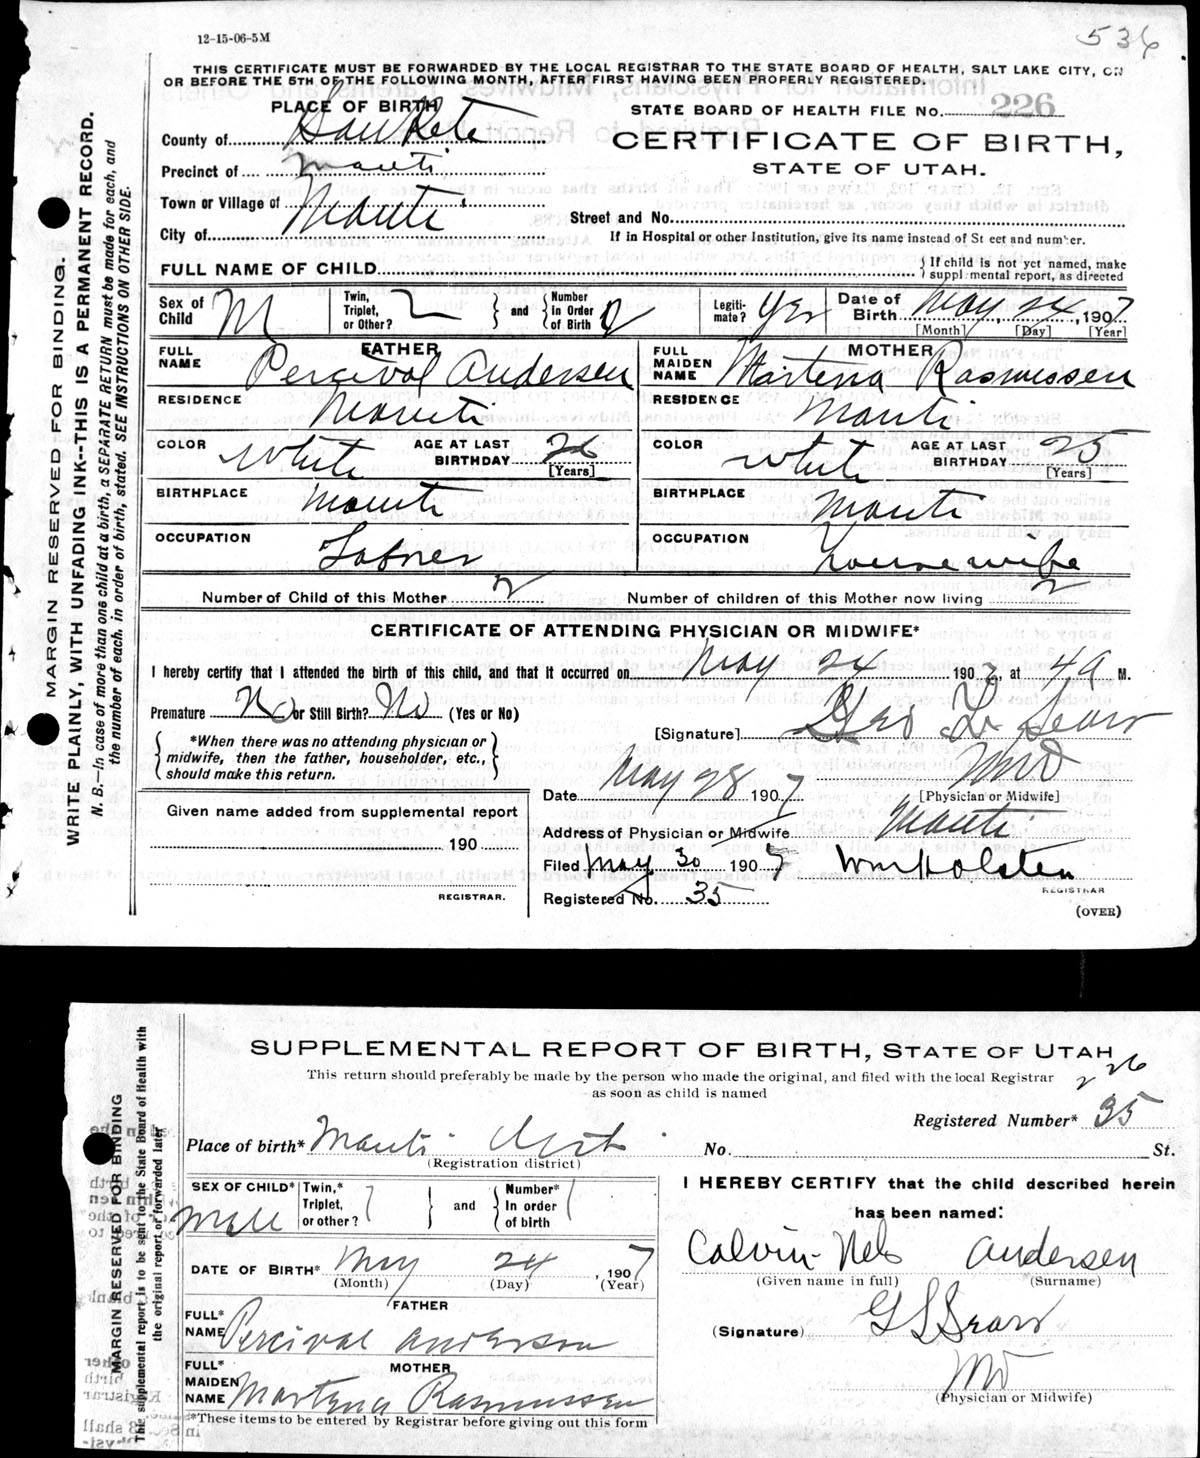 12-15-06-5M
536
THIS CERTIFICATE MUST BE FORWARDED BY THE LOCAL REGISTRAR TO THE STATE BOARD OF HEALTH, SALT LAKE CITY, ON
OR BEFORE THE 5TH OF THE FOLLOWING MONTH, AFTER FIRST HAVING BEEN PROPERLY REGISTERED.
PLACE OF BIRTH
STATE BOARD OF HEALTH FILE No. 226
County of SanPete
CERTIFICATE OF BIRTH,
STATE OF UTAH.
Precinct of Manti
Town or Village of Manti
Street and No.
City of
If in Hospital or other Institution, give its name instead of St eet and number.
FULL NAME OF CHILD { If child is not yet named, make
suppl mental report, as directed
Sex of Child M Twin, Triplet, or Other? } and { Number In Order of Birth Legiti-mate? Yes Date of Birth May 24, 1907
[Month] [Day] [Year]
FATHER MOTHER
FULL NAME Percival Andersen FULL MAIDEN NAME Martena Rasmussen
RESIDENCE Manti RESIDENCE Manti
COLOR White AGE AT LAST BIRTHDAY 26 [Years] COLOR White AGE AT LAST BIRTHDAY 25 [Years]
BIRTHPLACE Manti BIRTHPLACE Manti
OCCUPATION Labner OCCUPATION housewife
Number of Child of this Mother 2 Number of children of this Mother now living 2
CERTIFICATE OF ATTENDING PHYSICIAN OR MIDWIFE*
I hereby certify that I attended the birth of this child, and that it occurred on May 24 1907, at 4 a M.
Premature No or Still Birth? No (Yes or No)
[Signature] Geo L Sears
MD
[Physician or Midwife]
{ *When there was no attending physician or
midwife, then the father, householder, etc.,
should make this return. }
Date May 28 1907
Address of Physician or Midwife Manti
Filed May 30 1907 Wm Holsten
REGISTRAR
Registered No. 35
(OVER)
Given name added from supplemental report
190
REGISTRAR.
MARGIN RESERVED FOR BINDING.
WRITE PLAINLY, WITH UNFADING INK--THIS IS A PERMANENT RECORD.
N. B.—In case of more than one child at a birth, a SEPARATE RETURN must be made for each, and
the number of each, in order of birth, stated. SEE INSTRUCTIONS ON OTHER SIDE.
SUPPLEMENTAL REPORT OF BIRTH, STATE OF UTAH
This return should preferably be made by the person who made the original, and filed with the local Registrar
as soon as child is named
226
Registered Number* 35
Place of birth* Manti Dist No. St.
(Registration district)
SEX OF CHILD* Male Twin,* Triplet, or other? } and { Number* In order of birth
I HEREBY CERTIFY that the child described herein
has been named:
DATE OF BIRTH* May 24, 1907
(Month) (Day) (Year)
Calvin Nels Andersen
(Given name in full) (Surname)
FATHER
FULL* NAME Percival Anderson
(Signature) G L Sears
MD
(Physician or Midwife)
MOTHER
FULL* MAIDEN NAME Martena Rasmussen
*These items to be entered by Registrar before giving out this form
MARGIN RESERVED FOR BINDING
This supplemental report is to be sent to the State Board of Health with
the original report or forwarded later